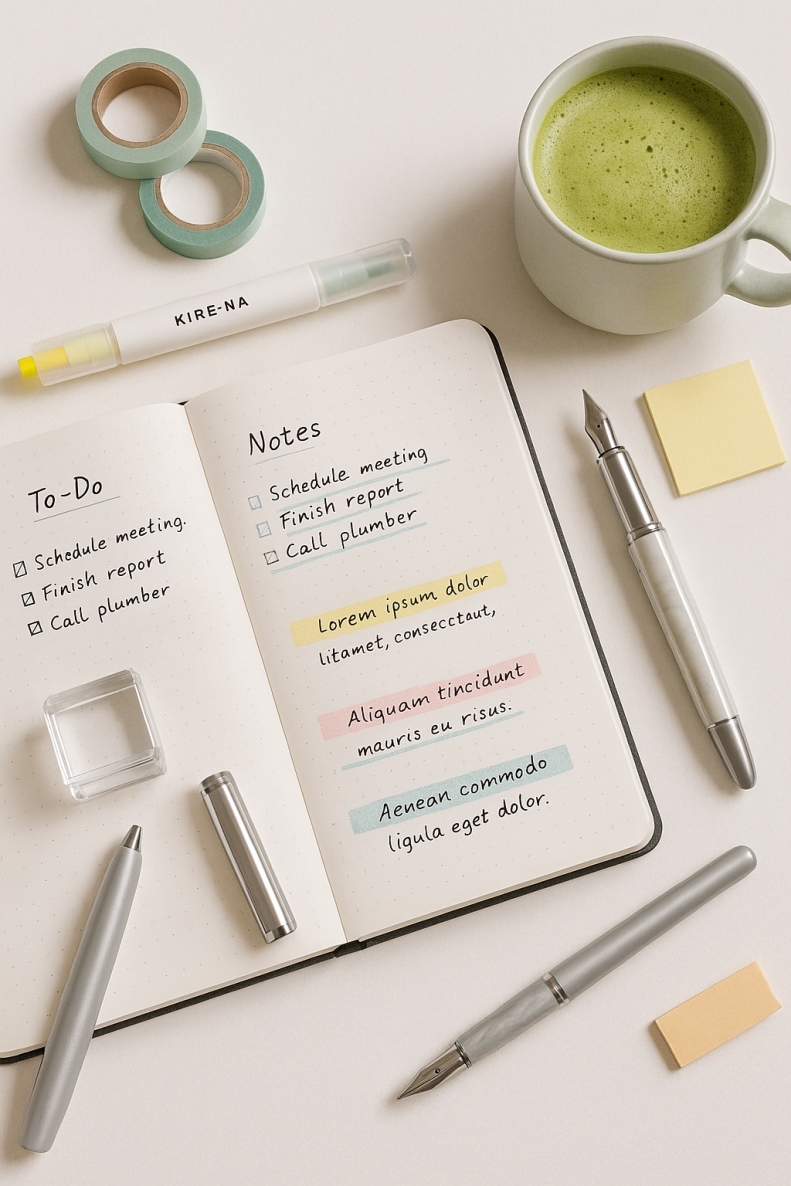 KIRE-NA
To-Do
Schedule meeting.
Finish report
Call plumber
Notes
Schedule meeting
Finish report
Call plumber
Lorem ipsum dolor
litamet, consecctaut,
Aliquam tincidunt
mauris eu risus.
Aenean commodo
ligula eget dolor.